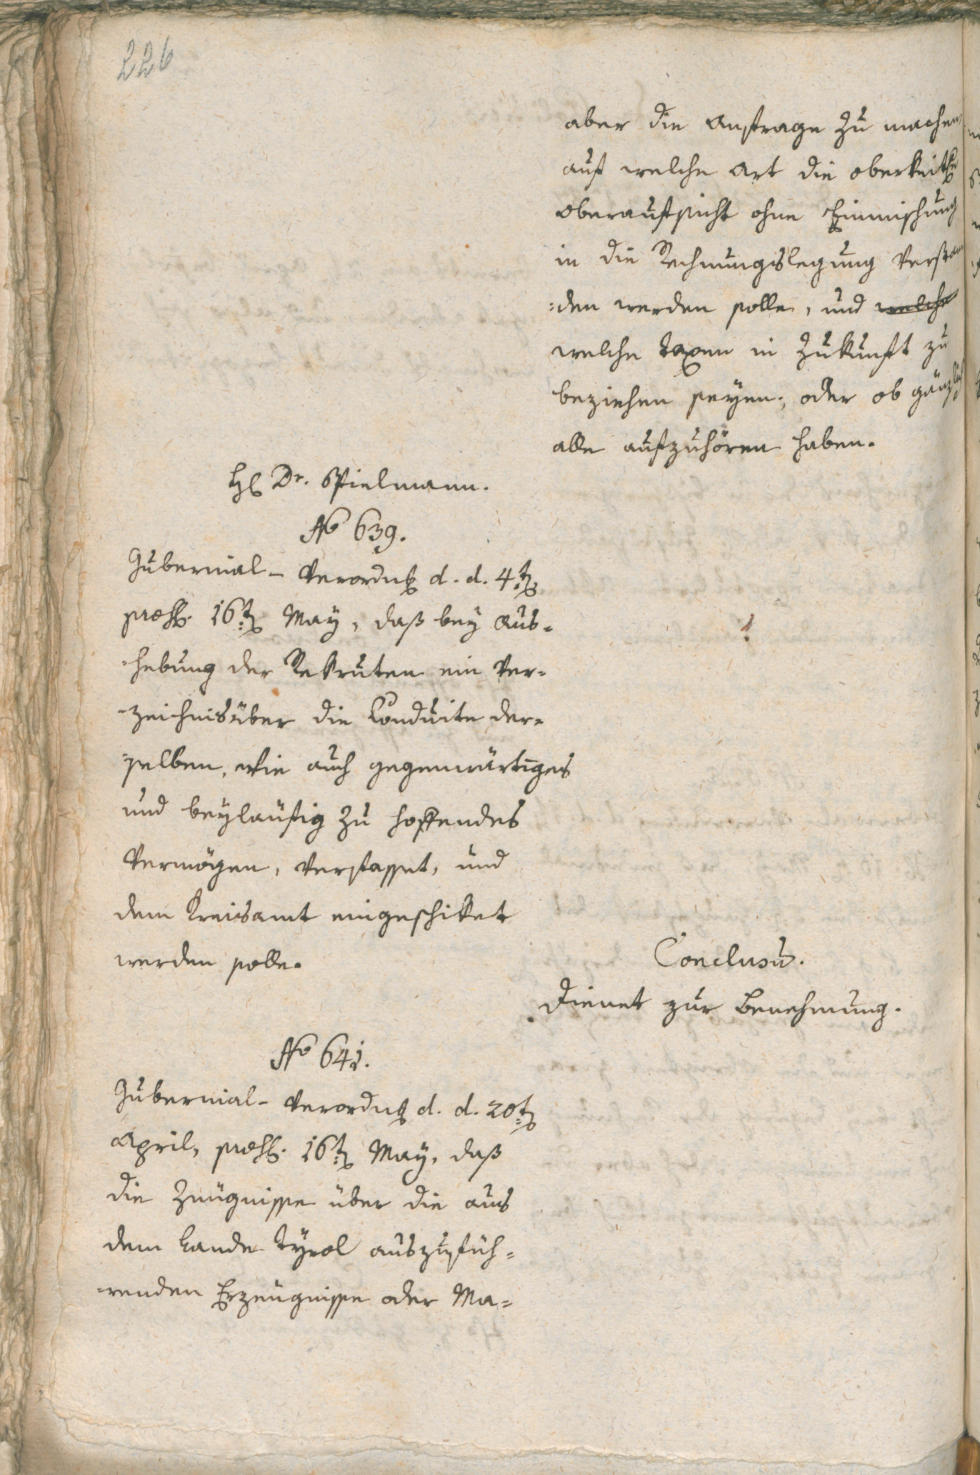 226
aber die Anfrage zu machen
auf welche Art die oberkeitl
Oberaufsicht ohne Einmischung
in die Rechnungslegung verstan
:den werden solle, und welche
welche Taxen in Zukunft zu
beziehen seyen, oder ob gänzl
alle aufzuhören haben.
H Dr. Spielmann.
No 639.
Gubernial-Verordng d. d. 4t
præs. 16t May, daß bey Aus-
-hebung der Rekruten ein Ver-
-zeichnis über die Konduite der-
selben, wie auch gegenwärtiges
und beyläufig zu hoffendes
Vermögen, verfasset, und
dem Kreisamt eingeschiket
werden solle.
Conclusū.
Dienet zur Benehmung.
No 641.
Gubernial-Verordng d. d. 20t
April, præs. 16t May, daß
die Zeügnisse über die aus
dem Lande Tÿrol auszufüh-
-renden Erzeügnisse oder Ma-